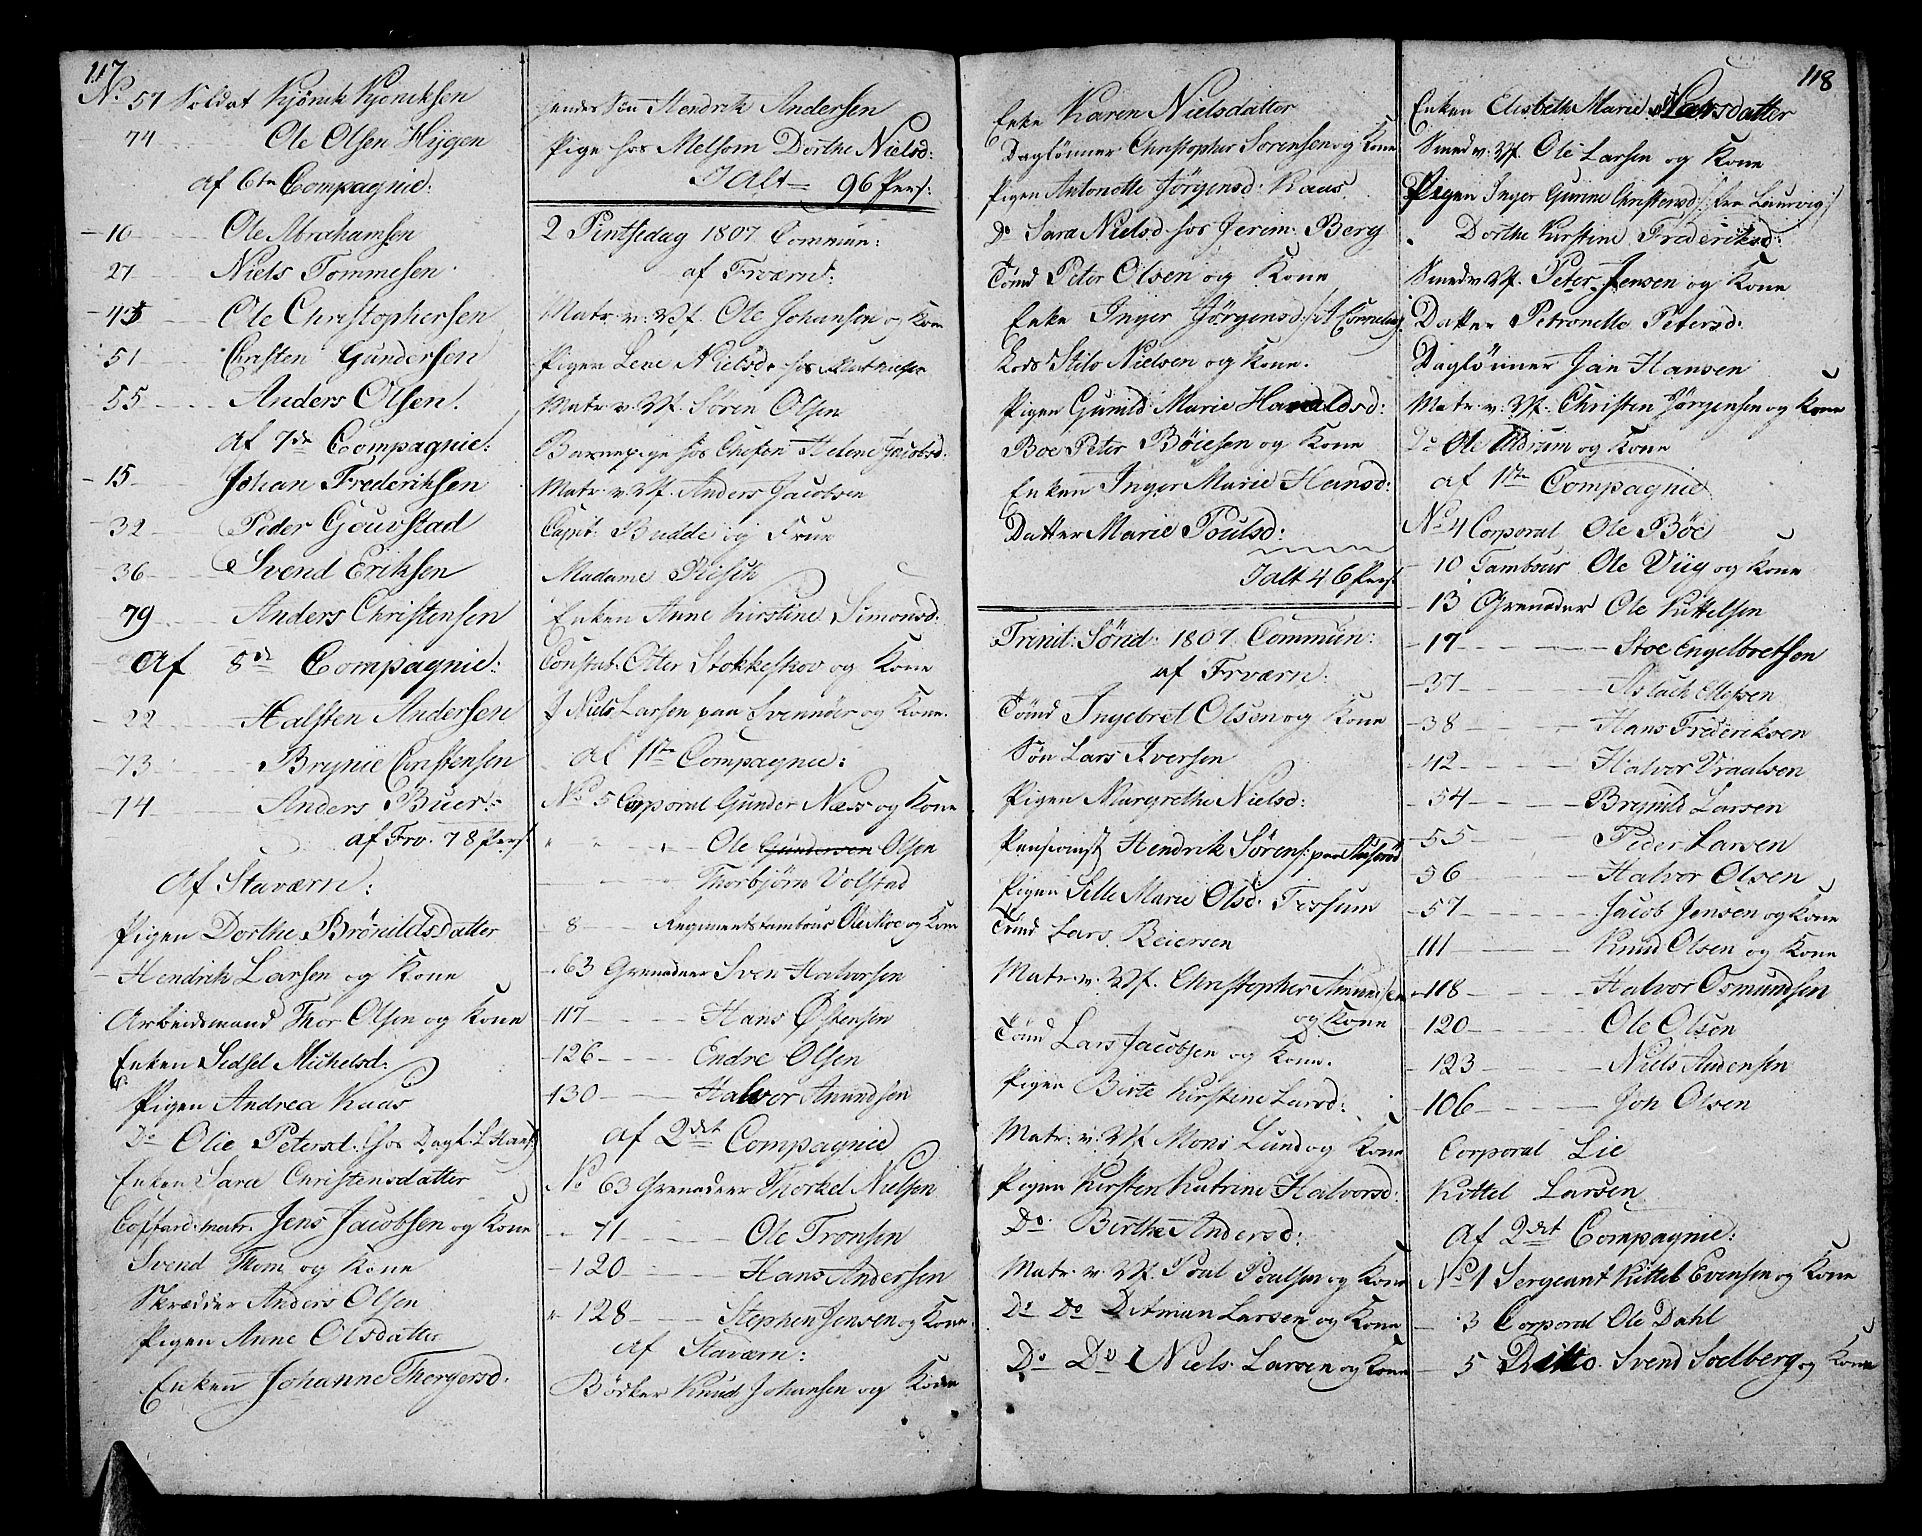 117
No. 57 Soldat Kjønik Kjøniksen
74 Ole Olsen Hÿgen
af 6te Compagnie:
10 Ole Abrahamsen
27 Niels Tommesen
45 Ole Christophersen
51 Christen Gundersen
55 Anders Olsen
af 7de Compagnie:
15 Johan Frederiksen
32 Peder Gouvstad
36 Svend Eriksen
79 Anders Christensen
Af 8de Compagnie:
22 Halsten Andersen
73 Brynie Christensen
14 Anders Buer
af Frv. 78 Pers:
Af Staværn:
Pigen Dorthe Brønildsdatter
Hendrik Larsen og Kone
Arbeidsmand Thor Olsen og Kone
Enken Sidsel Michelsd:
Pigen Andrea Kaas
Do Olie Petersd: (hos Dagl. L. Hans)
Enken Sara Christensdatter
Coffard: matr. Jens Jacobsen og Kone
Svend Thom og Kone
Skrædder Anders Olsen
Pigen Anne Olsdatter
Enken Johanne Thorgersd.
hendes Søn Hendrik Andersen
Pige hos Melsom Dorthe Nielsd:
I Alt 96 Pers:
2 Pintsedag 1807 Commun:
af Frværn:
Matr. v. Vf. Ole Johansen og Kone
Pigen Lene Nielsd. hos
Matr v. Vf. Søren Olsen
Barnepige hos Chefen Helene Jacobsd:
Matr. v. Vf. Anders Jacobsen
Capit. Budde og Frue
Madame Piesch
Enken Anne Kirstine Simonsd:
Constab: Otter Stokkeskov og Kone
J Niels Larsen paa Svennøer og Kone
Af 1ste Compagnie:
No 5 Corporal Gunder Næss og Kone
Ole Gundersen Olsen
Thorbjørn Volstad
8 Regimentstambour Ole Moe og Kone
63 Grenadeer Sven Halvorsen
117 Hans Østensen
126 Endre Olsen
130 Halvor Amundsen
af 2det Compagnie
No 63 Grenadeer Thorkel Nielsen
71 Ole Tronsen
120 Hans Andersen
128 Stephen Jensen og Kone
Af Staværn:
Bødker Knud Johansen og Kone
118
Enke Karen Nielsdatter
Daglønner Christopher Sørensen og Kone
Pigen Antonette Jørgensd: Kaas
Do Sara Nielsd hos Jerem: Berg
Tømd Peter Olsen og Kone
Enke Inger Jørgensd:
Lods Stilo Nielsen og Kone.
Pigen Gunild Marie Haraldsd:
Boe Peter Bøiesen og Kone
Enken Inger Marie Hansd:
Datter Marie Poulsd:
I alt 46 Pers:
Trinit: Sønd: 1807 Commun:
af Frværn:
Tømd Ingebret Olsen og Kone
Søn Lars Iversen
Pigen Margrethe Nielsd:
Pensionist Hendrik Sørens: paa
Pigen Sille Marie Olsd. Tessum
Tømd Lars Reiersen
Matr. v. Vf. Christopher Amundsen
og Kone
Tømd Lars Jacobsen og Kone.
Pigen Birte Kirstine Larsd:
Matr: v: Vf Mons Lund og Kone
Pigen Kirsten Katrine Halvorsd:
Do: Birthe Andersd:
Matr. v. Vf. Poul Poulsen og Kone
Do Do Ditman Larsen og Kone
Do Do Niels Larsen og Kone
Enken Elisbeth Marie Larsdatter
Smed v. Vf. Ole Larsen og Kone
Pigen Inger Gurine Christensd /: fra Laurvig :/
Dorthe Kirstine Frederiksd:
Smed v. Vf. Peter Jensen og Kone
Datter Petronelle Petersd:
Daglønner Jan Hansen
Matr: v: Vf: Christen Jørgensen og Kone
Do Ole Aldrum og Kone
af 1ste Compagnie
No 4 Corporal Ole Bøe
10 Tambour Ole Viig og Kone
13 Grenader Ole Kittelsen
17 Stoe Engelbretsen
37 Aslach Ellefsen
38 Hans Frederiksen
42 Halvor Vraalsen
54 Brynild Larsen
55 Peder Larsen
56 Halvor Olsen
57 Jacob Jensen og Kone
111 Knud Olsen og Kone
118 Halvor Osmundsen
120 Ole Olsen
123 Niels Andersen
106 Joh Olsen
Corporal Lie
Kittel Larsen
Af 2det Compagnie:
No 1 Sergeant Kittel Evensen og Kone
3 Corporal Ole Dahl
5 Ditto. Svend Soelberg og Kone